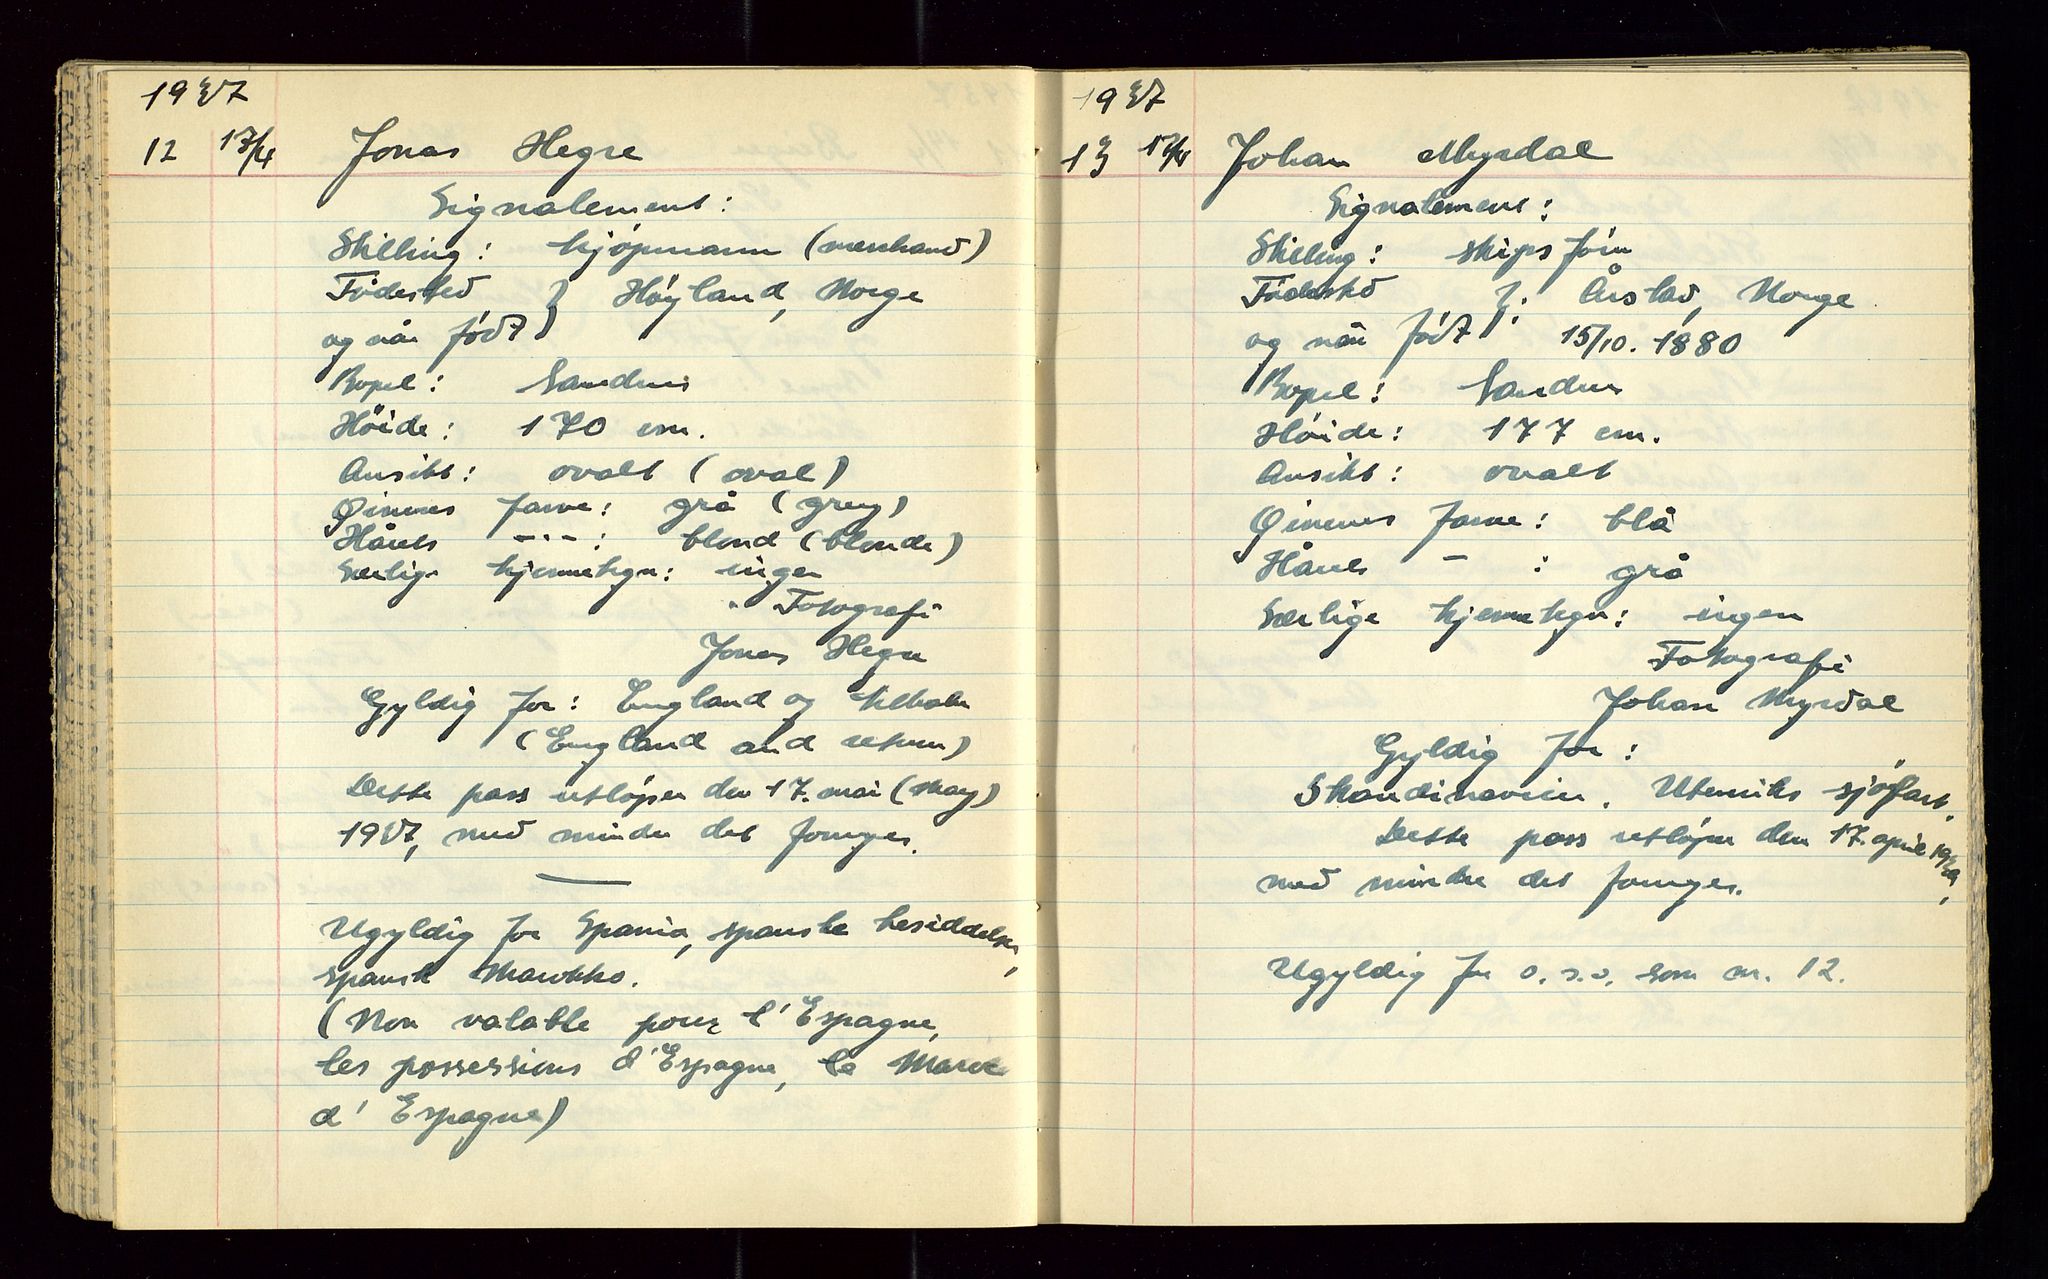 1937
12 17/4 Jonas Hegre
Signalement:
Stilling: kjöpmann (merchand)
Födested } Høyland, Norge
og når födt }
Bopel: Sandnes
Höide: 170 cm.
Ansikt: ovalt (oval)
Øinenes farve: grå (grey)
Hårets -"-: blond (blonde)
Særlige kjennetegn: ingen
Fotografi
Jonas Hegre
Gyldig for: England og tilbake
(England and return)
Dette pass utløper den 17. mai (May)
1937, med mindre det fornyes.
Ugyldig for Spania, spanske besiddelser,
spansk Marokko.
(Non valable pour l'Espagne,
les possessions d'Espagne, le Maroc
d'Espagne)
1937
13 17/4 Johan Myrdal
Signalement:
Stilling: skipsförer
Födested }: Årstad, Norge
og når födt } 15/10. 1880
Bopel: Sandnes
Höide: 177 cm.
Ansikt: ovalt
Øinenes farve: blå
Hårets - : grå
Særlige kjennetegn: ingen
Fotografi
Johan Myrdal
Gyldig for:
Skandinavien. Utenriks sjöfart.
Dette pass utløper den 17. april 1939,
med mindre det fornyes.
Ugyldig for o.s.v. som nr. 12.